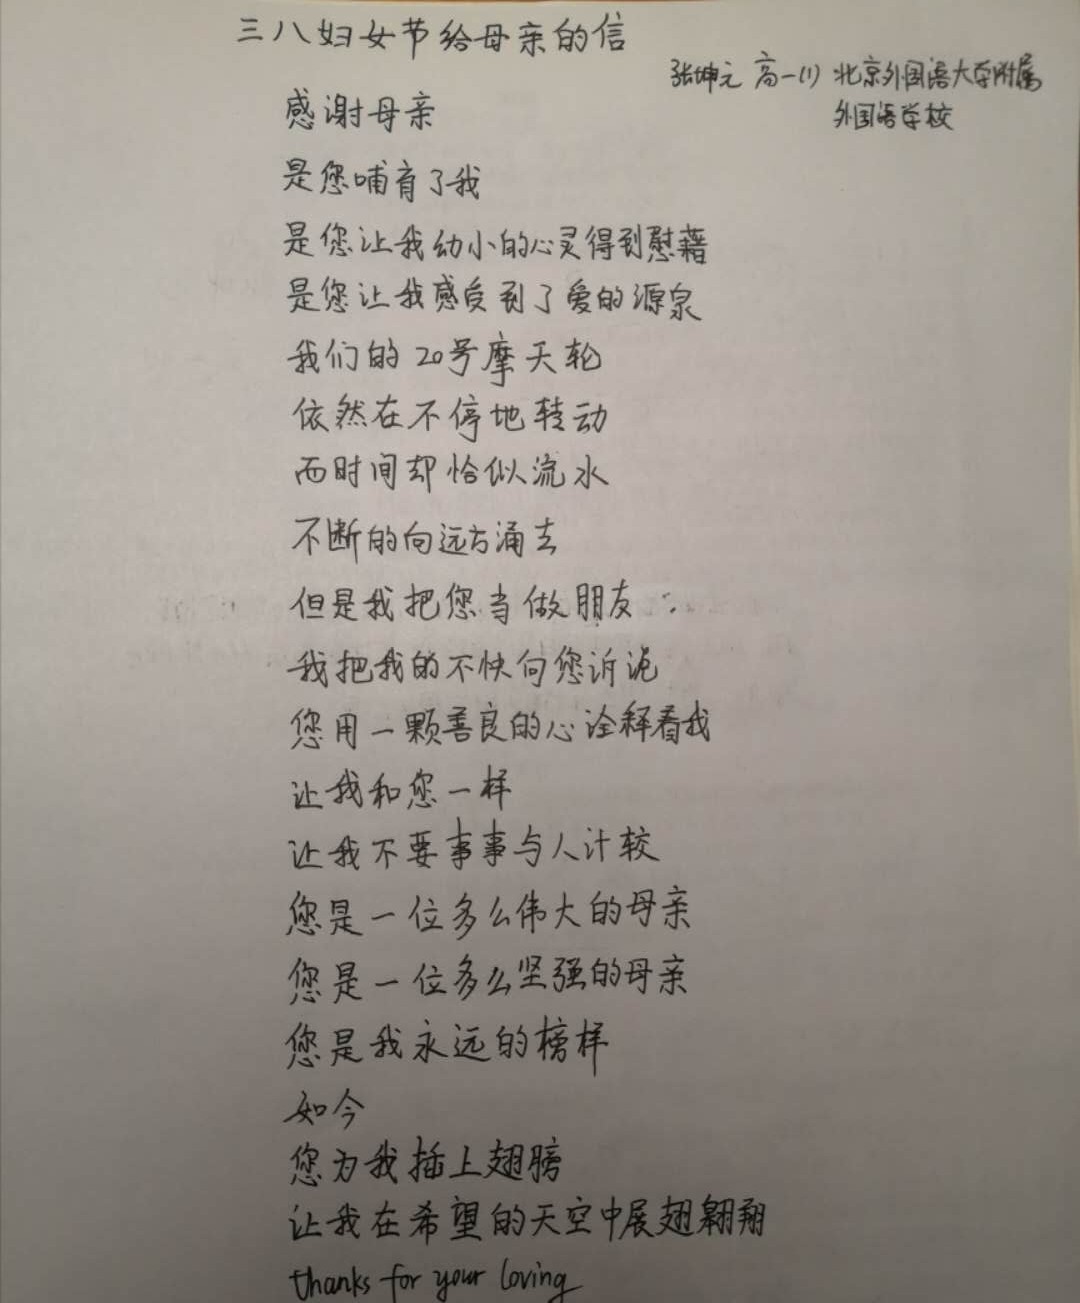 三八妇女节给母亲的信
张坤元 高一(1) 北京外国语大学附属
外国语学校
感谢母亲
是您哺育了我
是您让我幼小的心灵得到慰藉
是您让我感受到了爱的源泉
我们的20号摩天轮
依然在不停地转动
而时间却恰似流水
不断的向远方涌去
但是我把您当做朋友
我把我的不快向您诉说
您用一颗善良的心诠释着我
让我和您一样
让我不要事事与人计较
您是一位多么伟大的母亲
您是一位多么坚强的母亲
您是我永远的榜样
如今
您为我插上翅膀
让我在希望的天空中展翅翱翔
thanks for your loving